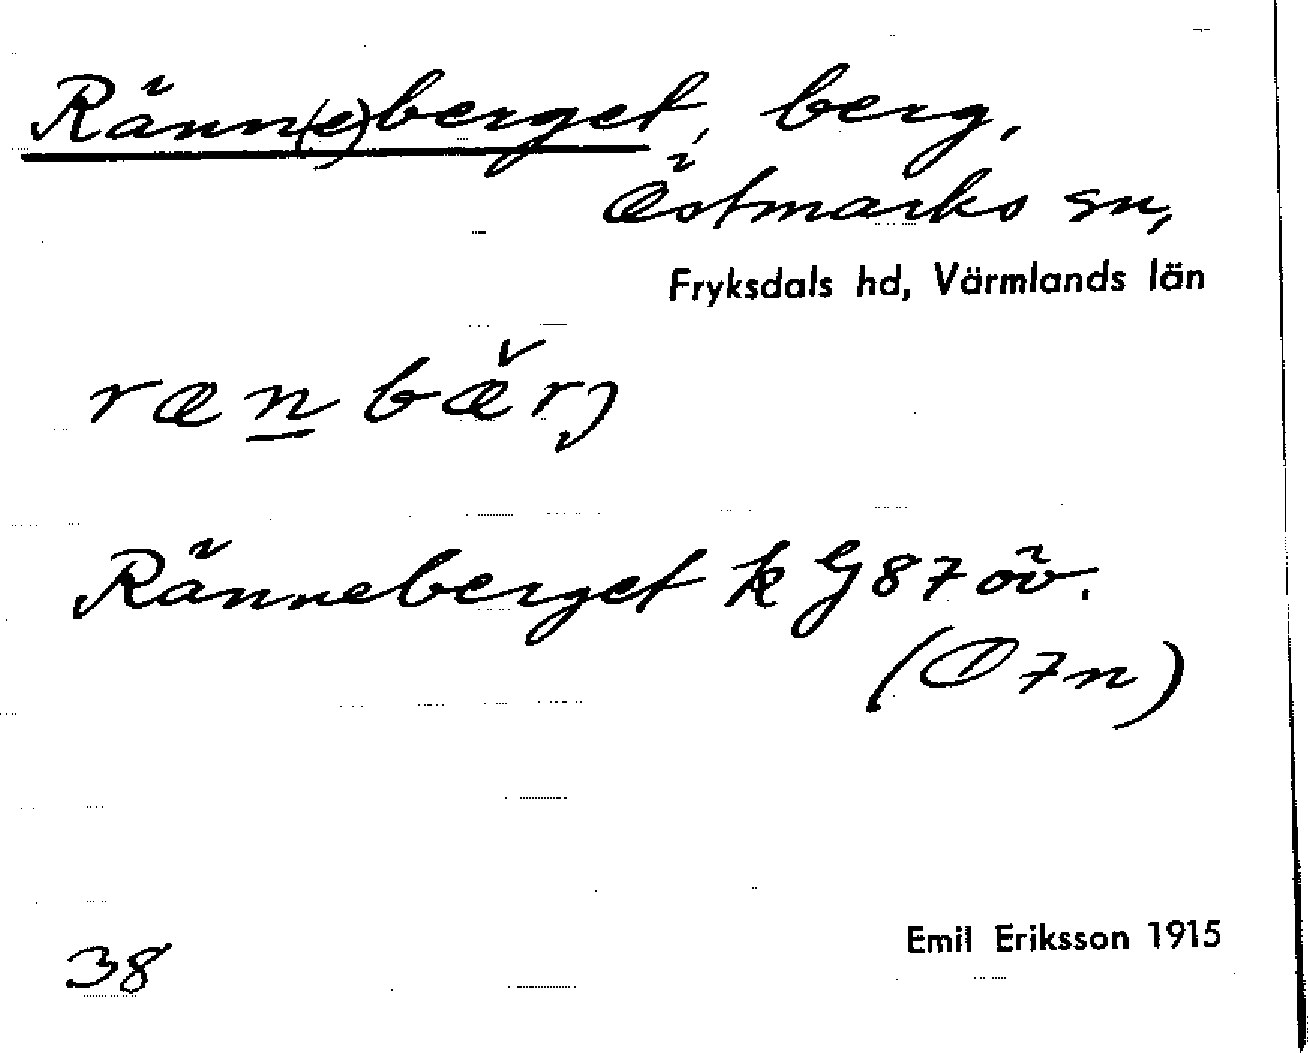 Ränn(e)berget, berg,
Östmarks sn,
Fryksdals hd, Värmlands län
rænbærj
Ränneberget k G87 öv.
(Ö7n)
Emil Eriksson 1915
38